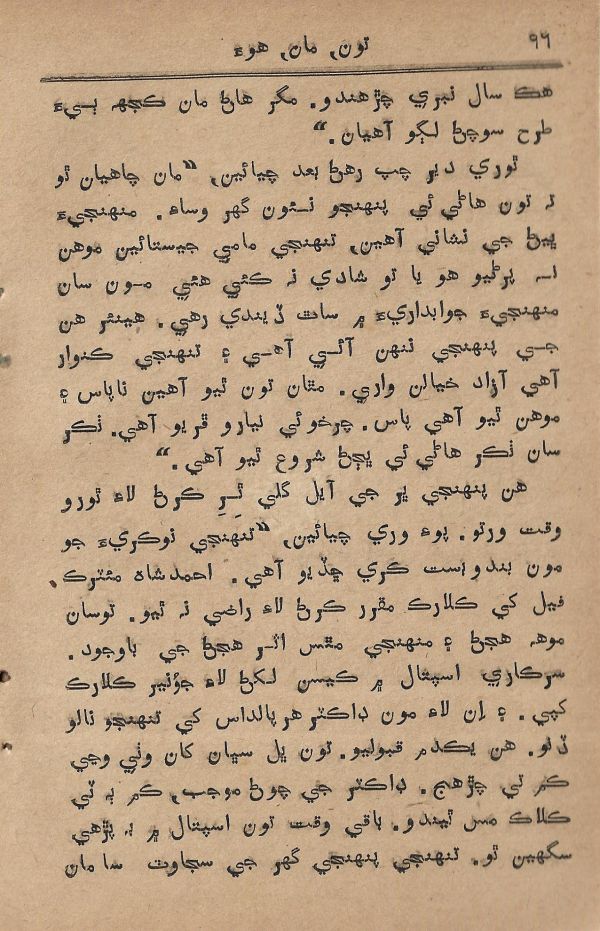 ٩٦
تون, مان, هوءِ
هڪ سال نبري چڙهندو. مگر هاڻ مان ڪجهہ ٻيءَ
طرح سوچڻ لڳو آهيان.“
ٿوري دير چپ رهڻ بعد چيائين, “مان چاهيان ٿو
تہ تون هاڻي ئي پنهنجو نئون گهر وساءِ. منهنجيءَ
ڀيڻ جي نشاني آهين, تنهنجي مامي جيستائين موهن
نہ پرڻيو هو يا تو شادي نہ ڪئي هئي مون سان
منهنجيءَ جوابداريءَ ۾ ساٿ ڏيندي رهي. هينئر هن
جي پنهنجي ننهن آئي آهي ۽ تنهنجي ڪنوار
آهي آزاد خيالن واري. مٿان تون ٿيو آهين ناپاس ۽
موهن ٿيو آهي پاس. چرخوئي نيارو ڦريو آهي. ٺڪر
سان ٺڪر هاڻي ئي ڀڄڻ شروع ٿيو آهي.“
هن پنهنجي ڀر جي آيل گلي ٺَرِ ڪرڻ لاءِ ٿورو
وقت ورتو. پوءِ وري چيائين, “تنهنجي نوڪريءَ جو
مون بندوبست ڪري ڇڏيو آهي. احمدشاہ مئٽرڪ
فيل کي ڪلارڪ مقرر ڪرڻ لاءِ راضي نہ ٿيو. توسان
موهہ هجڻ ۽ منهنجي مٿس اثر هجڻ جي باوجود.
سرڪاري اسپتال ۾ ڪيسن لکڻ لاءِ جونيئر ڪلارڪ
کپي. ۽ اِن لاءِ مون ڊاڪٽر هرپالداس کي تنهنجو نالو
ڏنو. هن يڪدم قبوليو. تون ڀل سڀان کان وٺي وڃي
ڪم تي چڙهج. ڊاڪٽر جي چوڻ موجب, ڪم بہ ٽي
ڪلاڪ مس ٿيندو. باقي وقت تون اسپتال ۾ بہ پڙهي
سگهين ٿو. تنهنجي پنهنجي گهر جي سجاوٽ سامان